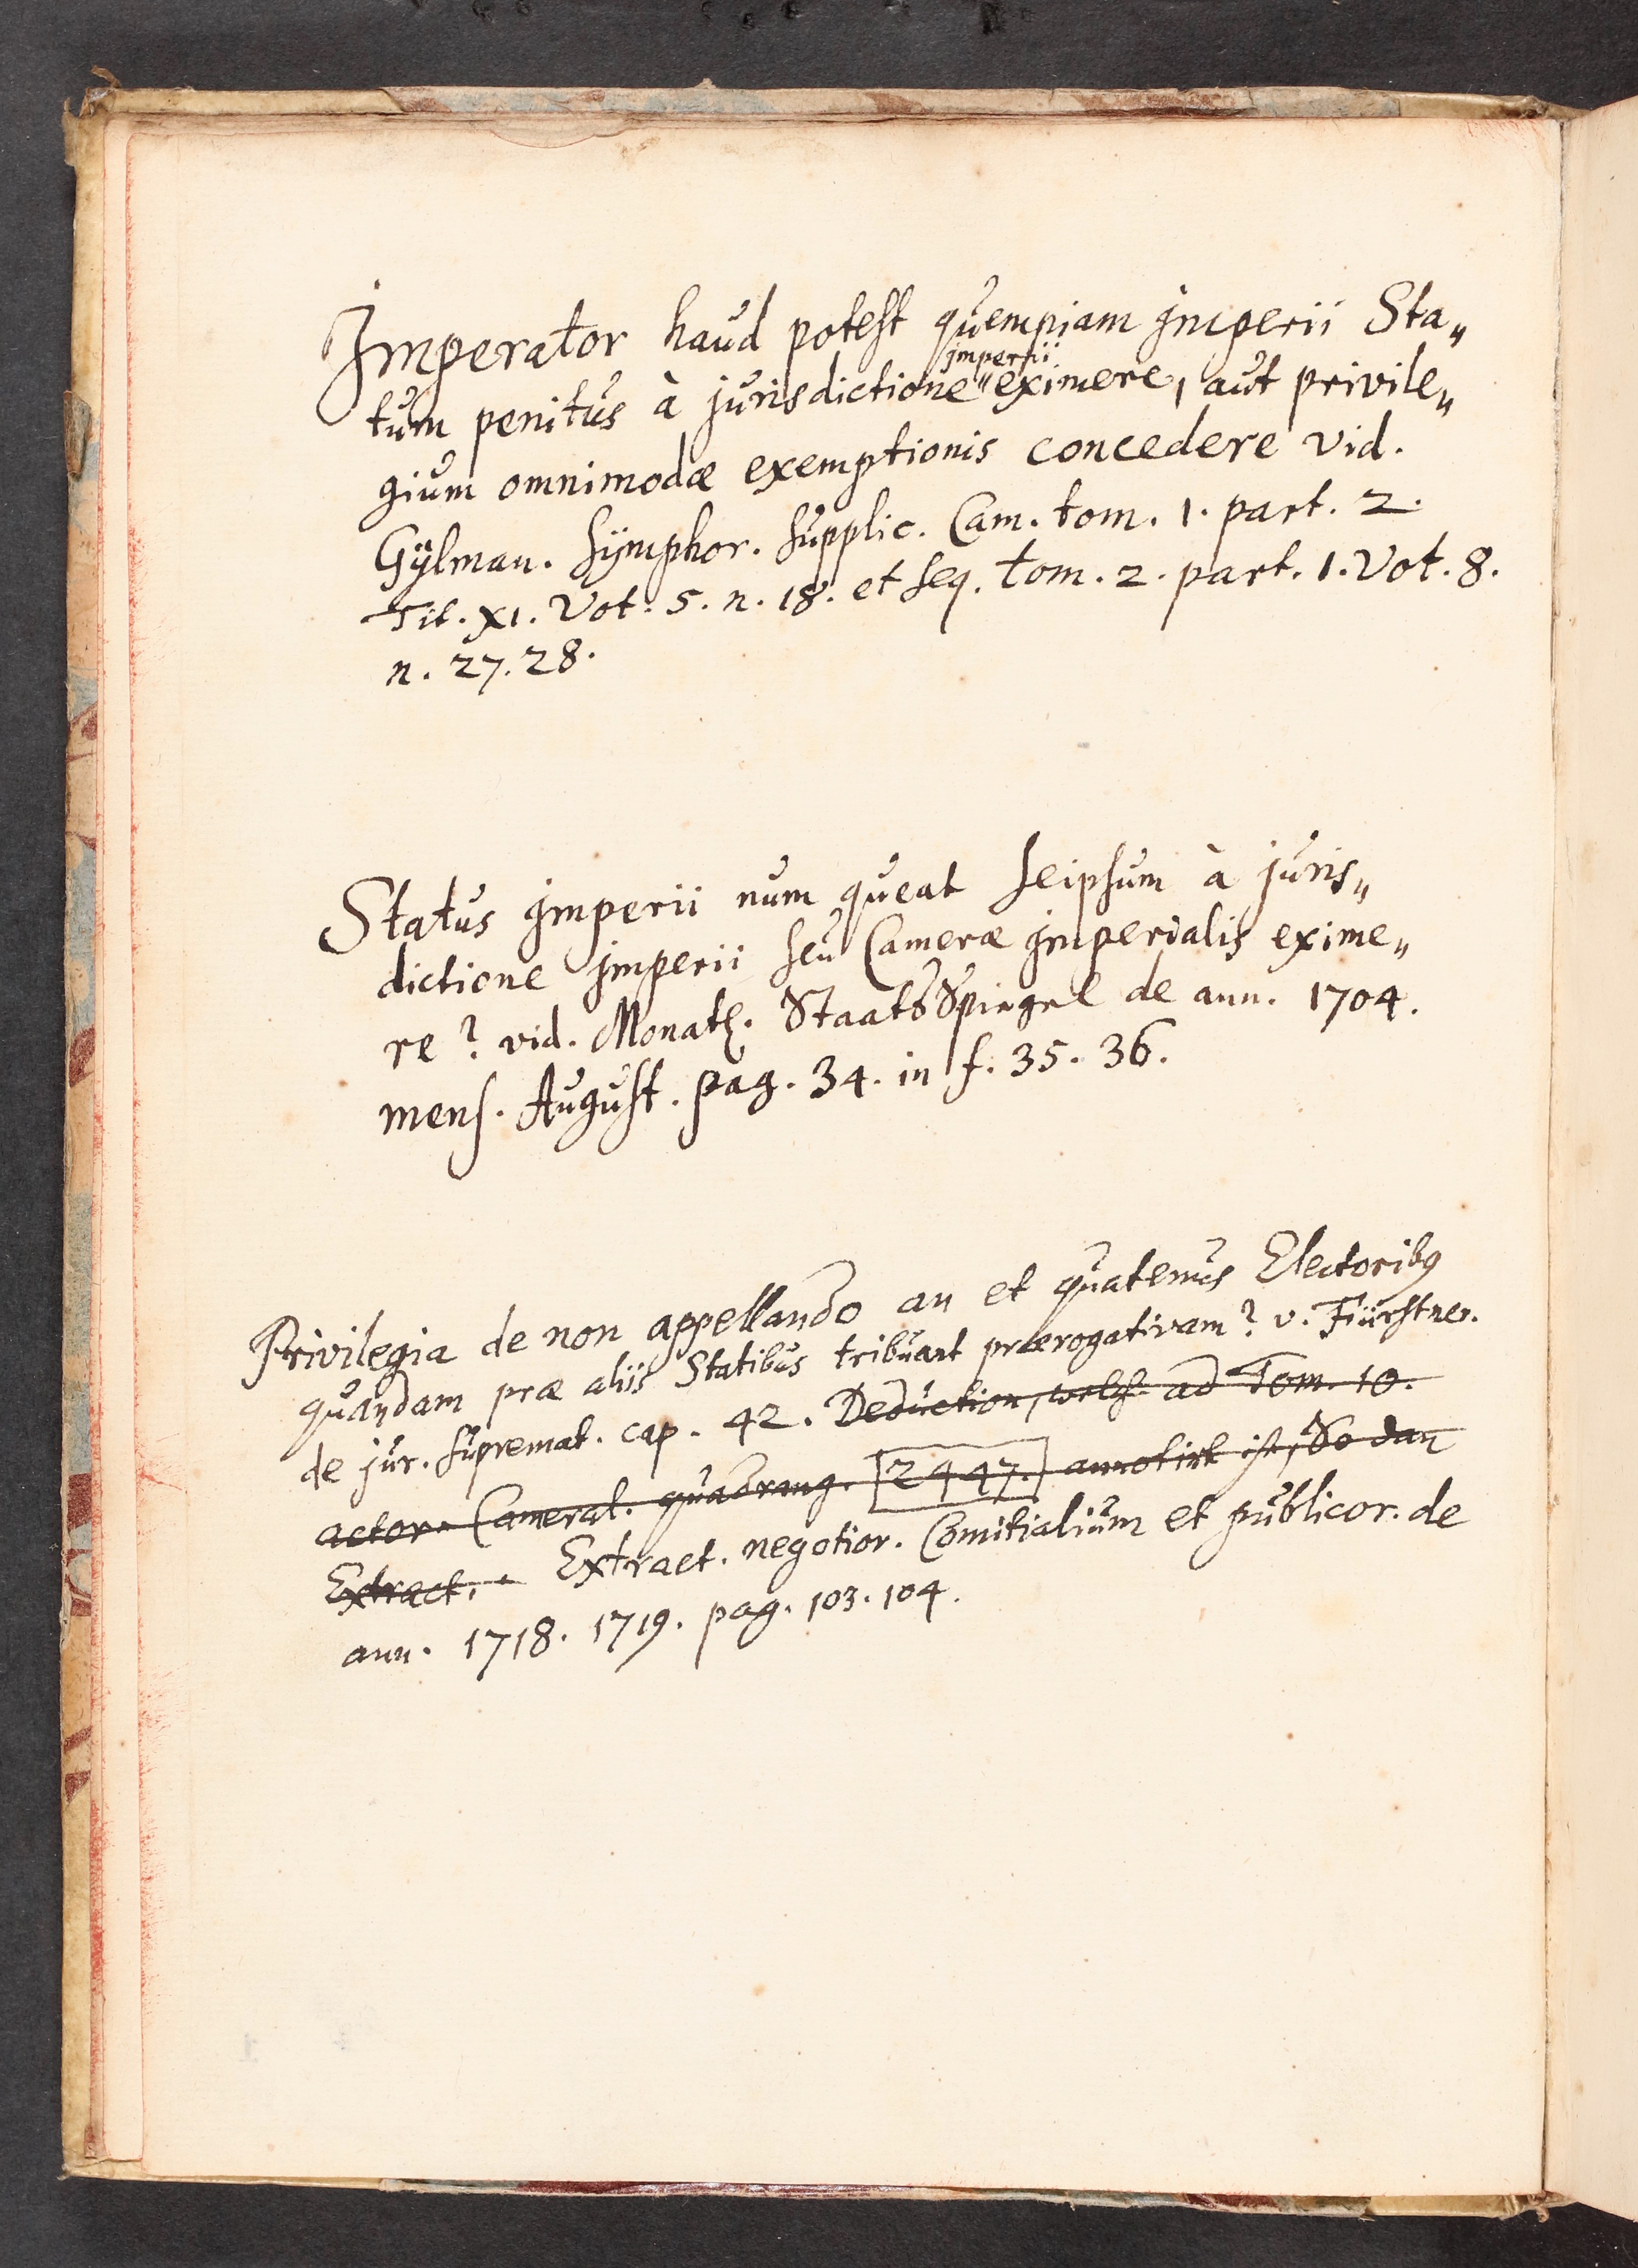 Imperator haud potest quempiam imperii Sta„
tum penitus à jurisdictione imperii eximere, aut privile„
gium omnimodæ exemptionis concedere vid.
Gÿlman. sÿmphor. supplic. Cam. tom. 1. part. 2.
Tit. XI. Vot. 5. n. 18. et seq. tom. 2. part. 1. Vot. 8.
n. 27. 28.
Status imperii num queat seipsum à juris„
dictione imperii seu Cameræ imperialis exime„
re? vid. Monatl. StaatsSpiegel de ann. 1704.
mens. August. pag. 34. in f. 35. 36.
Privilegia de non appellando an et quatenus Electoribus
quandam præ aliis Statibus tribuant prærogativam? v. Fürstner.
de jur. supremat. cap. 42. Deduction, welche ad Tom. 10.
actor. Cameral. quadrang. [2447.] annotirt ist, So dan
Extract. Extract. negotior. Comitialium et publicor. de
ann. 1718. 1719. pag. 103. 104.